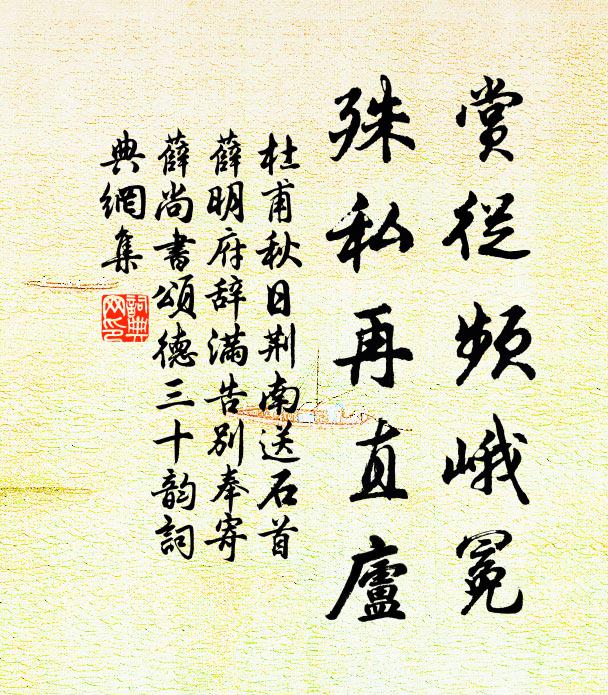 賞從頻峨冕
殊私再直廬
杜甫秋日荆南送石首
薛明府辞滿告別奉寄
薛尚書頌德三十韵詞
典網集
詞典
网印